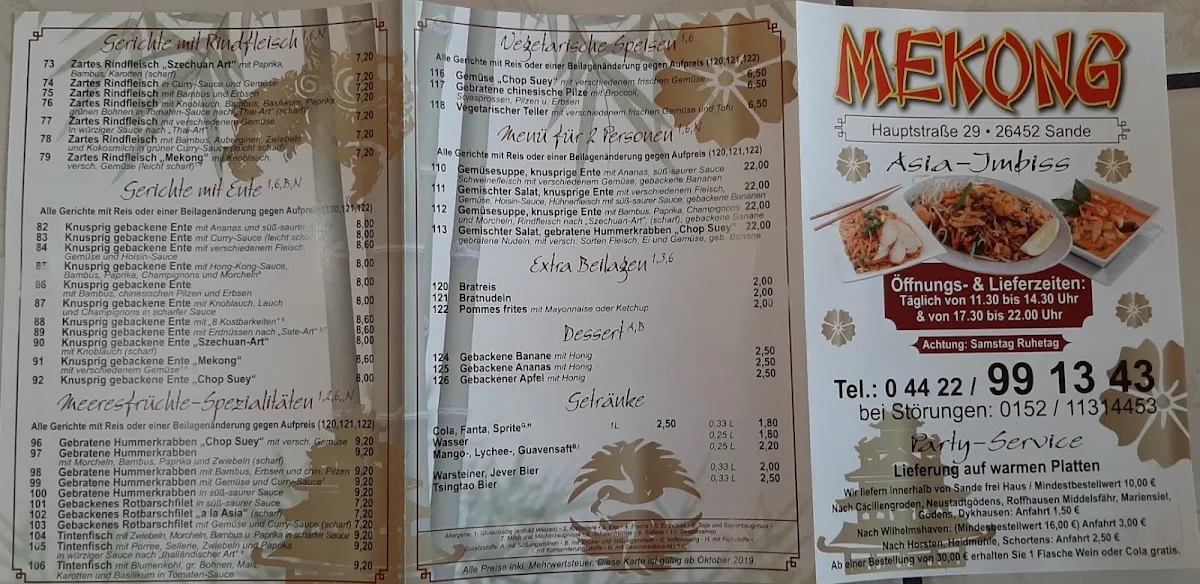 Gerichte mit Rindfleisch 1,6,N
73 Zartes Rindfleisch „Szechuan Art" mit Paprika, 7,20
Bambus, Karotten (scharf)
74 Zartes Rindfleisch in Curry-Sauce und Gemüse 7,20
75 Zartes Rindfleisch mit Bambus und Erbsen 7,20
76 Zartes Rindfleisch mit Knoblauch, Bambus, Basilikum, Paprika 7,20
grünen Bohnen in Tomaten-Sauce nach „Thai-Art" (scharf)
77 Zartes Rindfleisch mit verschiedenem Gemüse 7,20
in würziger Sauce nach „Thai-Art"
78 Zartes Rindfleisch mit Bambus, Auberginen, Zwiebeln 7,20
und Kokosmilch in grüner Curry-Sauce (leicht scharf)
79 Zartes Rindfleisch „Mekong" mit Knoblauch, 7,20
versch. Gemüse (leicht scharf)
Gerichte mit Ente 1,6,B,N
Alle Gerichte mit Reis oder einer Beilagenänderung gegen Aufpreis (120,121,122)
82 Knusprig gebackene Ente mit Ananas und süß-saurer 8,00
83 Knusprig gebackene Ente mit Curry-Sauce (leicht scharf) 8,00
84 Knusprig gebackene Ente mit verschiedenem Fleisch, 8,60
Gemüse und Hoisin-Sauce
85 Knusprig gebackene Ente mit Hong-Kong-Sauce, 8,00
Bambus, Paprika, Champignons und Morcheln
86 Knusprig gebackene Ente 8,00
mit Bambus, chinesischen Pilzen und Erbsen
87 Knusprig gebackene Ente mit Knoblauch, Lauch 8,00
und Champignons in scharfer Sauce
88 Knusprig gebackene Ente mit „8 Kostbarkeiten" 8,60
89 Knusprig gebackene Ente mit Erdnüssen nach „Sate-Art" 8,60
90 Knusprig gebackene Ente „Szechuan-Art" 8,00
mit Knoblauch (scharf)
91 Knusprig gebackene Ente „Mekong" 8,60
mit verschiedenem Gemüse
92 Knusprig gebackene Ente „Chop Suey" 8,00
Meeresfrüchte-Spezialitäten 1,2,6,N
Alle Gerichte mit Reis oder einer Beilagenänderung gegen Aufpreis (120,121,122)
96 Gebratene Hummerkrabben „Chop Suey" mit versch. Gemüse 9,20
97 Gebratene Hummerkrabben 9,20
mit Morcheln, Bambus, Paprika und Zwiebeln (scharf)
98 Gebratene Hummerkrabben mit Bambus, Erbsen und chin. Pilzen 9,20
99 Gebratene Hummerkrabben mit Gemüse und Curry-Sauce 9,20
100 Gebratene Hummerkrabben in süß-saurer Sauce 9,20
101 Gebackenes Rotbarschfilet in süß-saurer Sauce 7,20
102 Gebackenes Rotbarschfilet „a la Asia" (scharf) 7,20
103 Gebackenes Rotbarschfilet mit Gemüse und Curry-Sauce (scharf) 7,20
104 Tintenfisch mit Zwiebeln, Morcheln, Bambus u. Paprika in scharfer Sauce 9,20
105 Tintenfisch mit Porree, Sellerie, Zwiebeln und Paprika 9,20
in würziger Sauce nach „thailändischer Art"
106 Tintenfisch mit Blumenkohl, gr. Bohnen, Mais, 9,20
Karotten und Basilikum in Tomaten-Sauce
Vegetarische Speisen 1,6
Alle Gerichte mit Reis oder einer Beilagenänderung gegen Aufpreis (120,121,122)
116 Gemüse „Chop Suey" mit verschiedenem frischen Gemüse 6,50
117 Gebratene chinesische Pilze mit Broccoli, 6,50
Sojasprossen, Pilzen u. Erbsen
118 Vegetarischer Teller mit verschiedenem frischen Gemüse und Tofu 6,50
Menü für 2 Personen 1,6,N
Alle Gerichte mit Reis oder einer Beilagenänderung gegen Aufpreis (120,121,122)
110 Gemüsesuppe, knusprige Ente mit Ananas, süß-saurer Sauce 22,00
Schweinefleisch mit verschiedenem Gemüse, gebackene Bananen
111 Gemischter Salat, knusprige Ente mit verschiedenem Fleisch, 22,00
Gemüse, Hoisin-Sauce, Hühnerfleisch mit süß-saurer Sauce, gebackene Bananen
112 Gemüsesuppe, knusprige Ente mit Bambus, Paprika, Champignons 22,00
und Morcheln, Rindfleisch nach „Szechuan-Art", (scharf), gebackene Banane
113 Gemischter Salat, gebratene Hummerkrabben „Chop Suey" 22,00
gebratene Nudeln, mit versch. Sorten Fleisch, Ei und Gemüse, geb. Banane
Extra Beilagen 1,3,6
120 Bratreis 2,00
121 Bratnudeln 2,00
122 Pommes frites mit Mayonnaise oder Ketchup 2,00
Dessert A,B
124 Gebackene Banane mit Honig 2,50
125 Gebackene Ananas mit Honig 2,50
126 Gebackener Apfel mit Honig 2,50
Getränke
Cola, Fanta, Sprite G,H 1L 2,50 0,33 L 1,80
Wasser 0,25 L 1,80
Mango-, Lychee-, Guavensaft B,I 0,25 L 2,20
Warsteiner, Jever Bier 0,33 L 2,00
Tsingtao Bier 0,33 L 2,50
Alle Preise inkl. Mehrwertsteuer. Diese Karte ist gültig ab Oktober 2019
MEKONG
Hauptstraße 29 • 26452 Sande
Asia-Imbiss
Öffnungs- & Lieferzeiten:
Täglich von 11.30 bis 14.30 Uhr
& von 17.30 bis 22.00 Uhr
Achtung: Samstag Ruhetag
Tel.: 0 44 22 / 99 13 43
bei Störungen: 0152 / 11314453
Party-Service
Lieferung auf warmen Platten
Wir liefern innerhalb von Sande frei Haus / Mindestbestellwert 10,00 €
Nach Cäciliengroden, Neustadtgödens, Roffhausen Middelsfähr, Mariensiel,
Gödens, Dykhausen: Anfahrt 1,50 €
Nach Wilhelmshaven: (Mindestbestellwert 16,00 €) Anfahrt 3,00 €
Nach Horsten, Heidmühle, Schortens: Anfahrt 2,50 €
Ab einer Bestellung von 30,00 € erhalten Sie 1 Flasche Wein oder Cola gratis.